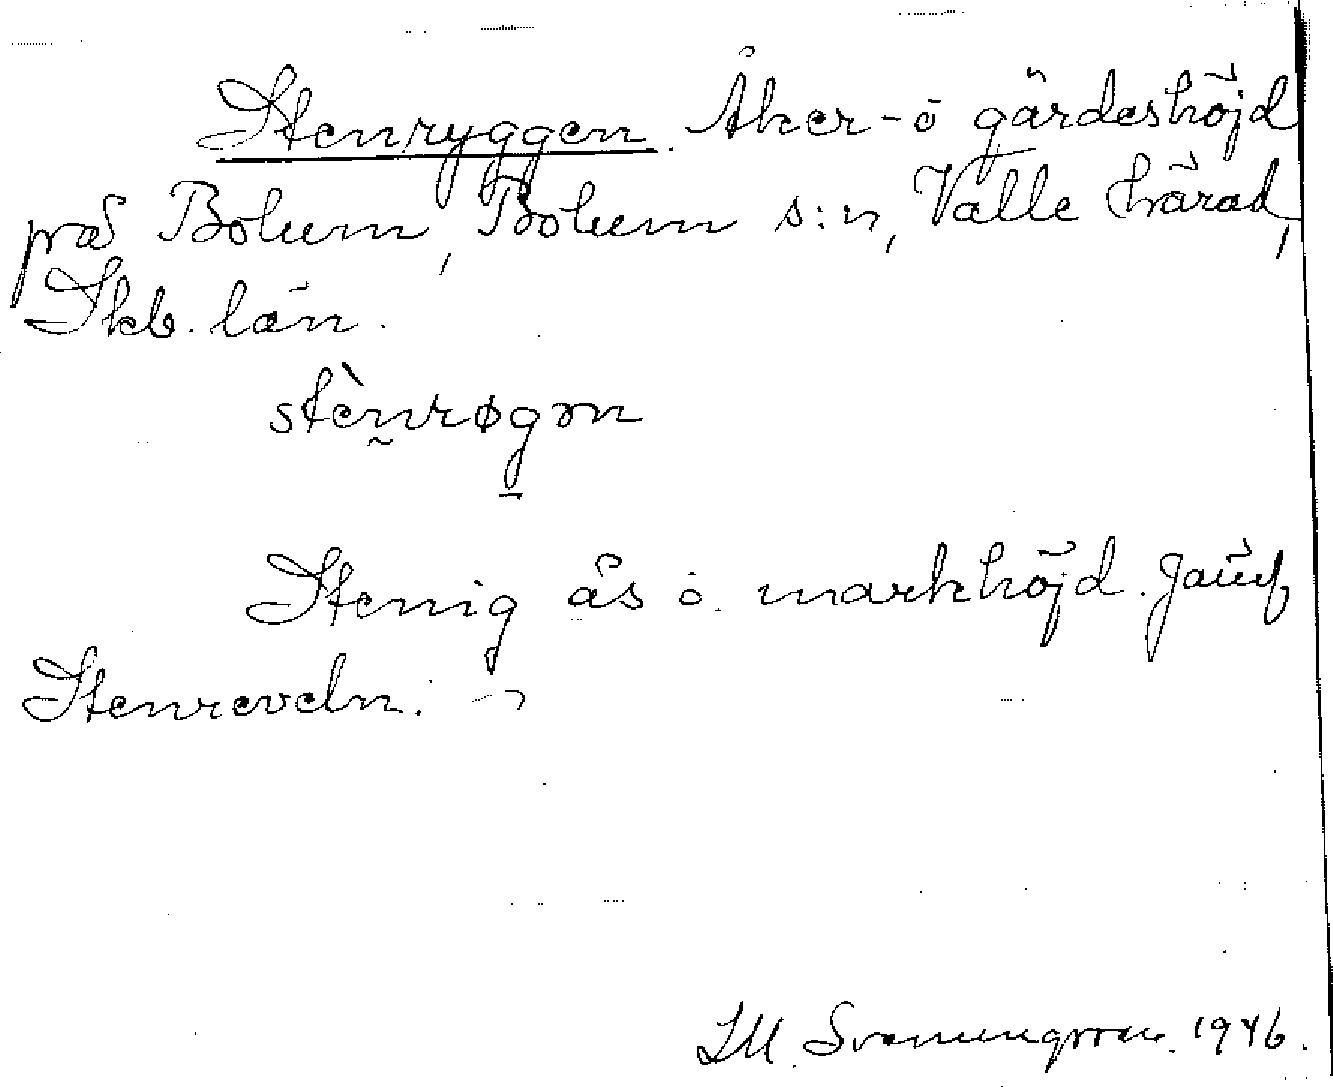 Stenryggen. Åker- o gärdeshöjd
på Bolum, Bolum s:n, Valle härad,
Skb. län.
stènrøgən
Stenig ås o. markhöjd. Jämf
Stenreveln.
SM. Svenungsson. 1946.